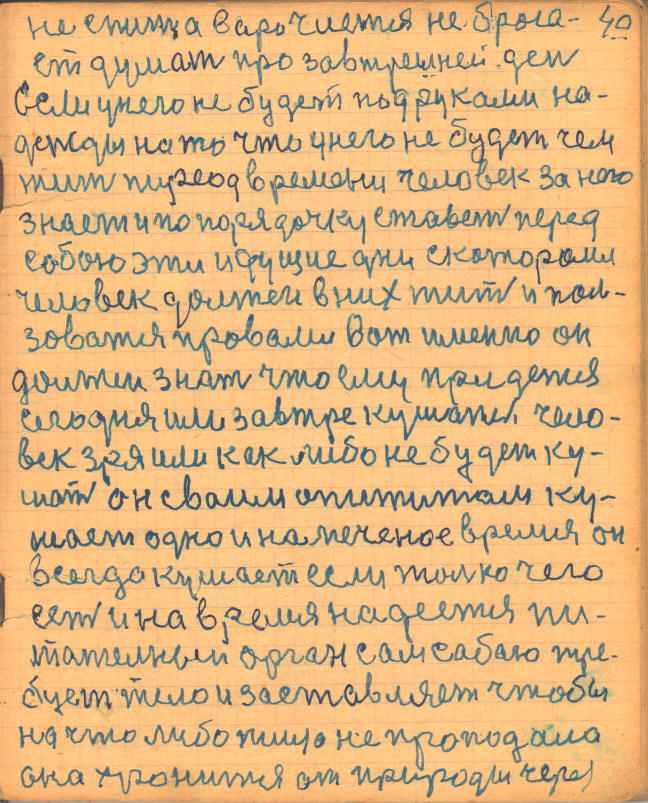 не спит а варочается не броса- 40
ет думат про завтрешней ден
Если унего не будет под руками на-
дежды на то что унего не будет чем
жит период времени человек за ного
знает и по порядочку ставет перед
собою эти идущие дни с которыми
человек должен в них жит и поль-
зоватя провами Вот именно он
должен знат что ему придется
сегодня или завтре кушатя чело-
век зря или как либо не будет ку-
шат он своим апитытом ку-
шает одно и намеченое время он
всегда кушает если толко чего
ест и на время надеется пи-
тателный орган сам сабою тре-
бует тело и заставляет чтобы
на что либо тило не проподало
она хронится от природы через